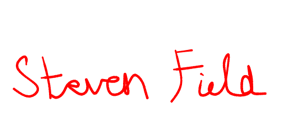 Steven Field